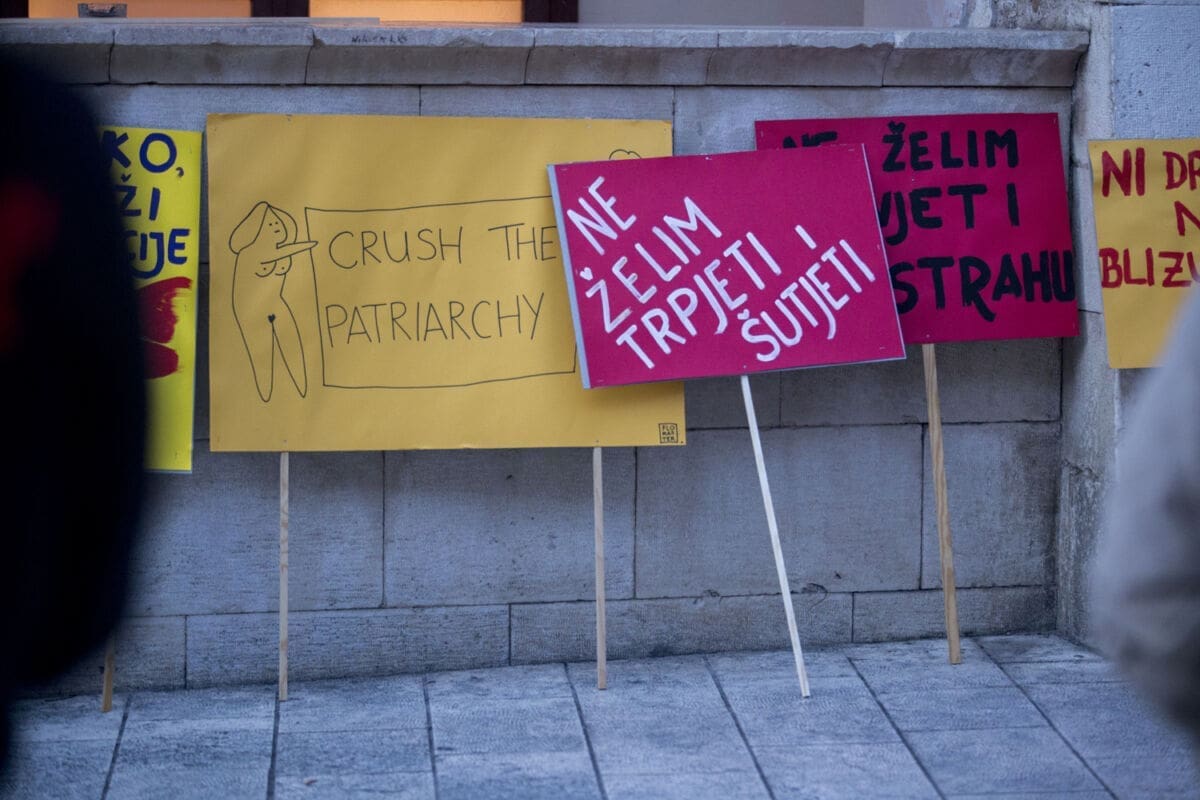 KO,
ŽI
CIJE
CRUSH THE
PATRIARCHY
FLO
MAS
TER
NE
ŽELIM
TRPJETI I
ŠUTJETI
NE ŽELIM
VJETI I
STRAHU
NI DR
N
BLIZU